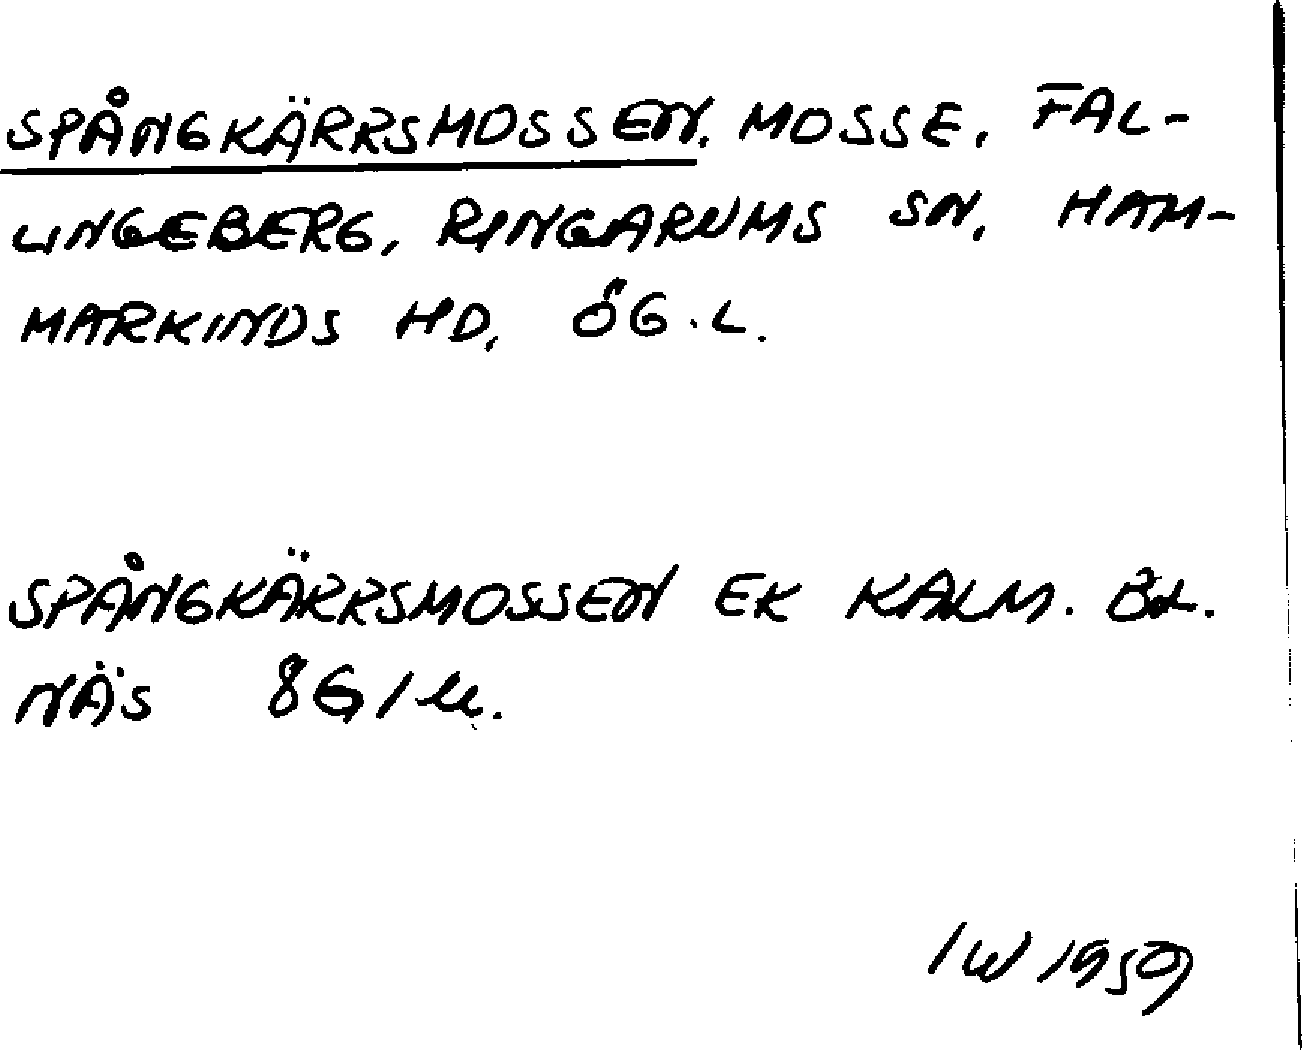 SPÅNGKÄRRSMOSSEN. MOSSE, FAL-
LINGEBERG, RINGARUMS SN, HAM-
MARKINDS HD, ÖG.L.
SPÅNGKÄRRSMOSSEN EK KALM. BL.
NÄS 8G/
IW 1959